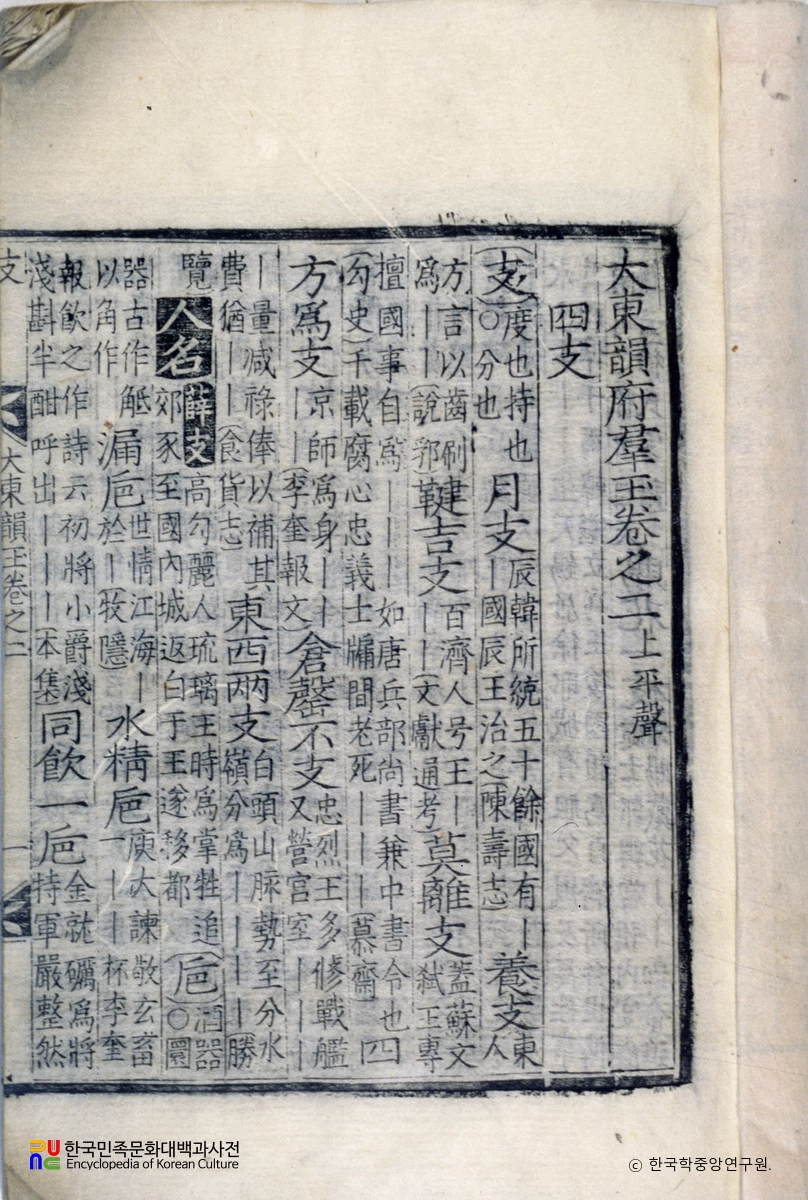 大東韻府羣玉卷之二 上平聲
四支
(支)度也持也〇分也 月支 辰韓所統五十餘國有｜｜國辰王治之(陳壽志) 養支 東人
方言以齒刷爲｜｜(說郛) 鞬吉支 百濟人号王｜｜｜(文獻通考) 莫離支 蓋蘇文弑王專
擅國事自爲｜｜｜如唐兵部尚書兼中書令也(勾史) 千載腐心忠義士牖間老死｜｜｜｜(慕齋) 四
方爲支 京師爲身｜｜｜｜(李奎報文) 倉罄不支 忠烈王多修戰艦又營宮室｜｜｜
｜量減祿俸以補其費猶｜｜(食貨志) 東西两支 白頭山脉勢至分水嶺分爲｜｜｜｜勝
覽 人名 薛支 高勾麗人琉璃王時爲掌牲追郊豕至國內城返白于王遂移都 (巵)酒器〇圜
器古作觝以角作 漏巵 世情江海｜於｜(牧隱) 水精巵 庾大諫敬玄畜一｜｜杯李奎
報飲之作詩云初將小爵淺淺斟半酣呼出｜｜｜(本集) 同飲一巵 金就礪爲將持軍嚴整然
支 大東韻玉卷之二 一
한국민족문화대백과사전
Encyclopedia of Korean Culture
ⓒ 한국학중앙연구원.